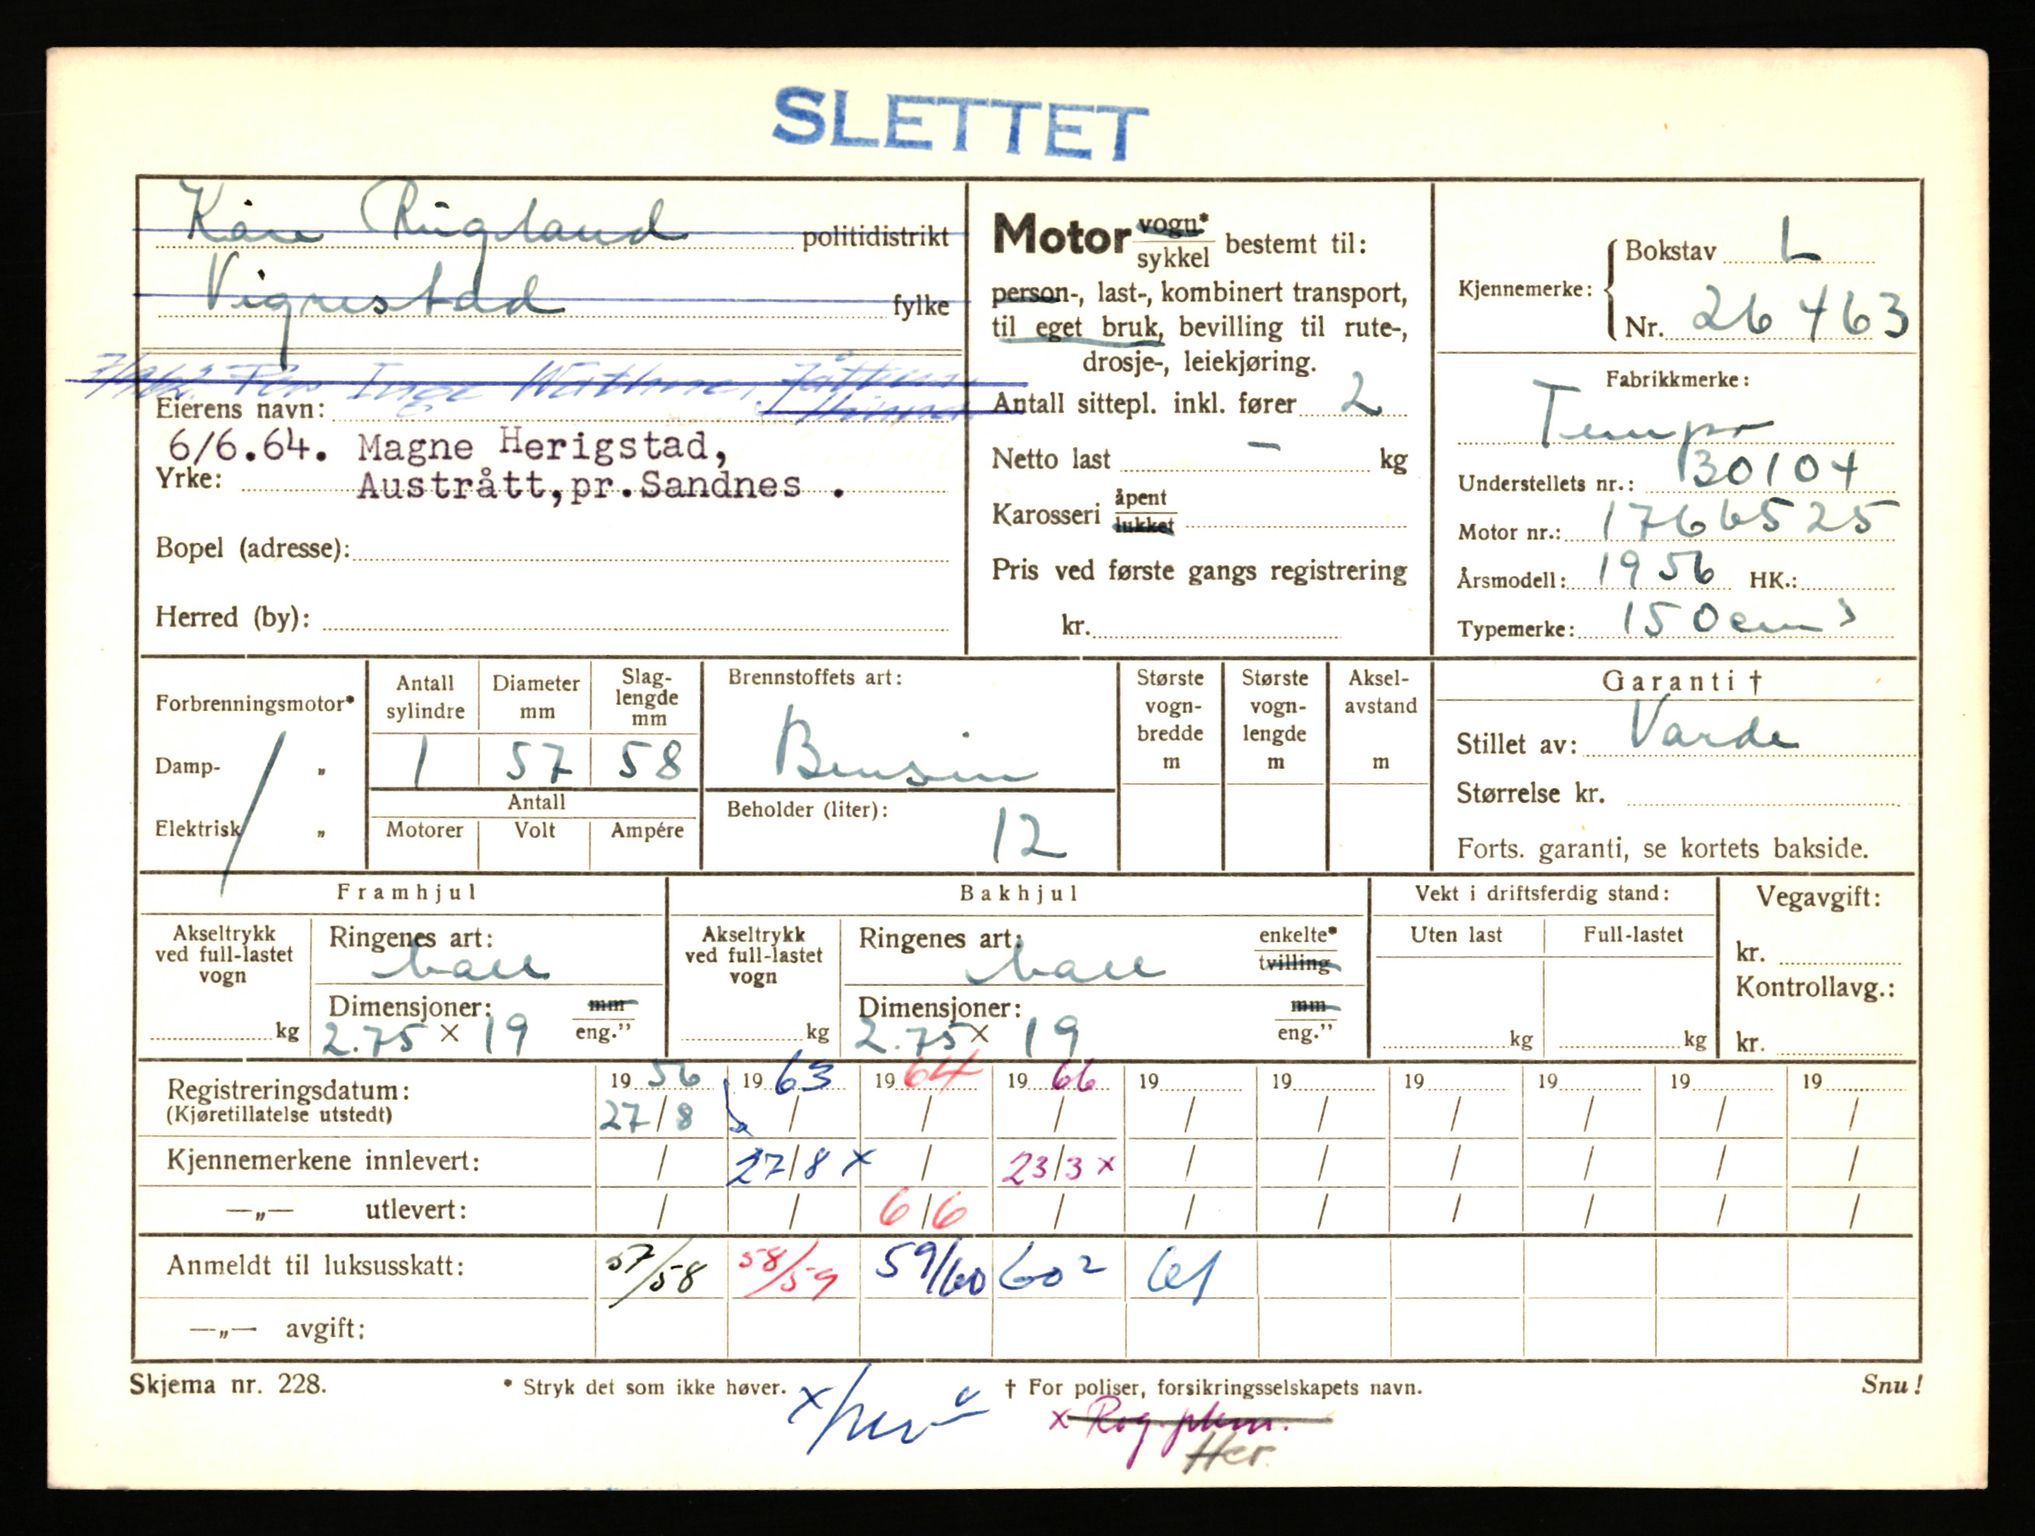 SLETTET
Kåre Rugland politidistrikt
Vigrestad fylke
Per Inge Wathne, Jåttun
Hinna
Eierens navn:
6/6.64. Magne Herigstad,
Yrke: Austrått, pr. Sandnes .
Bopel (adresse):
Herred (by):
Motor vogn* sykkel bestemt til:
person-, last-, kombinert transport,
til eget bruk, bevilling til rute-,
drosje-, leiekjøring.
Antall sittepl. inkl. fører 2
Netto last – kg
Karosseri åpent lukket
Pris ved første gangs registrering
kr.
Kjennemerke: Bokstav L
Nr. 26463
Fabrikkmerke:
Tempo
Understellets nr.: 130104
Motor nr.: 1766525
Årsmodell: 1956 HK.:
Typemerke: 150 cm³
Forbrenningsmotor*
Damp- „
Elektrisk „
Antall sylindre Diameter mm Slag-lengde mm
1 57 58
Antall
Motorer Volt Ampére
Brennstoffets art:
Bensin
Beholder (liter):
12
Største vogn-bredde m
Største vogn-lengde m
Aksel-avstand m
Garanti †
Stillet av: Varde
Størrelse kr.
Forts. garanti, se kortets bakside.
Framhjul
Akseltrykk ved full-lastet vogn
kg
Ringenes art:
ball
Dimensjoner: mm
2.75 x 19 eng.”
Bakhjul
Akseltrykk ved full-lastet vogn
kg
Ringenes art: enkelte*
ball tvilling
Dimensjoner: mm
2.75 x 19 eng.”
Vekt i driftsferdig stand:
Uten last Full-lastet
kg kg
Vegavgift:
kr.
Kontrollavg.:
kr.
Registreringsdatum: 19 56 19 63 19 64 19 66 19 19 19 19 19 19
(Kjøretillatelse utstedt) 27/8 / / / / / / / / /
Kjennemerkene innlevert: / 27/8 x / 23/3 x / / / / / /
—„— utlevert: / / 6/6 / / / / / / /
Anmeldt til luksusskatt: 57/58 58/59 59/60 60² 61
—„— avgift:
Skjema nr. 228. * Stryk det som ikke høver. † For poliser, forsikringsselskapets navn. Snu!
x Rog. phm.
Her.